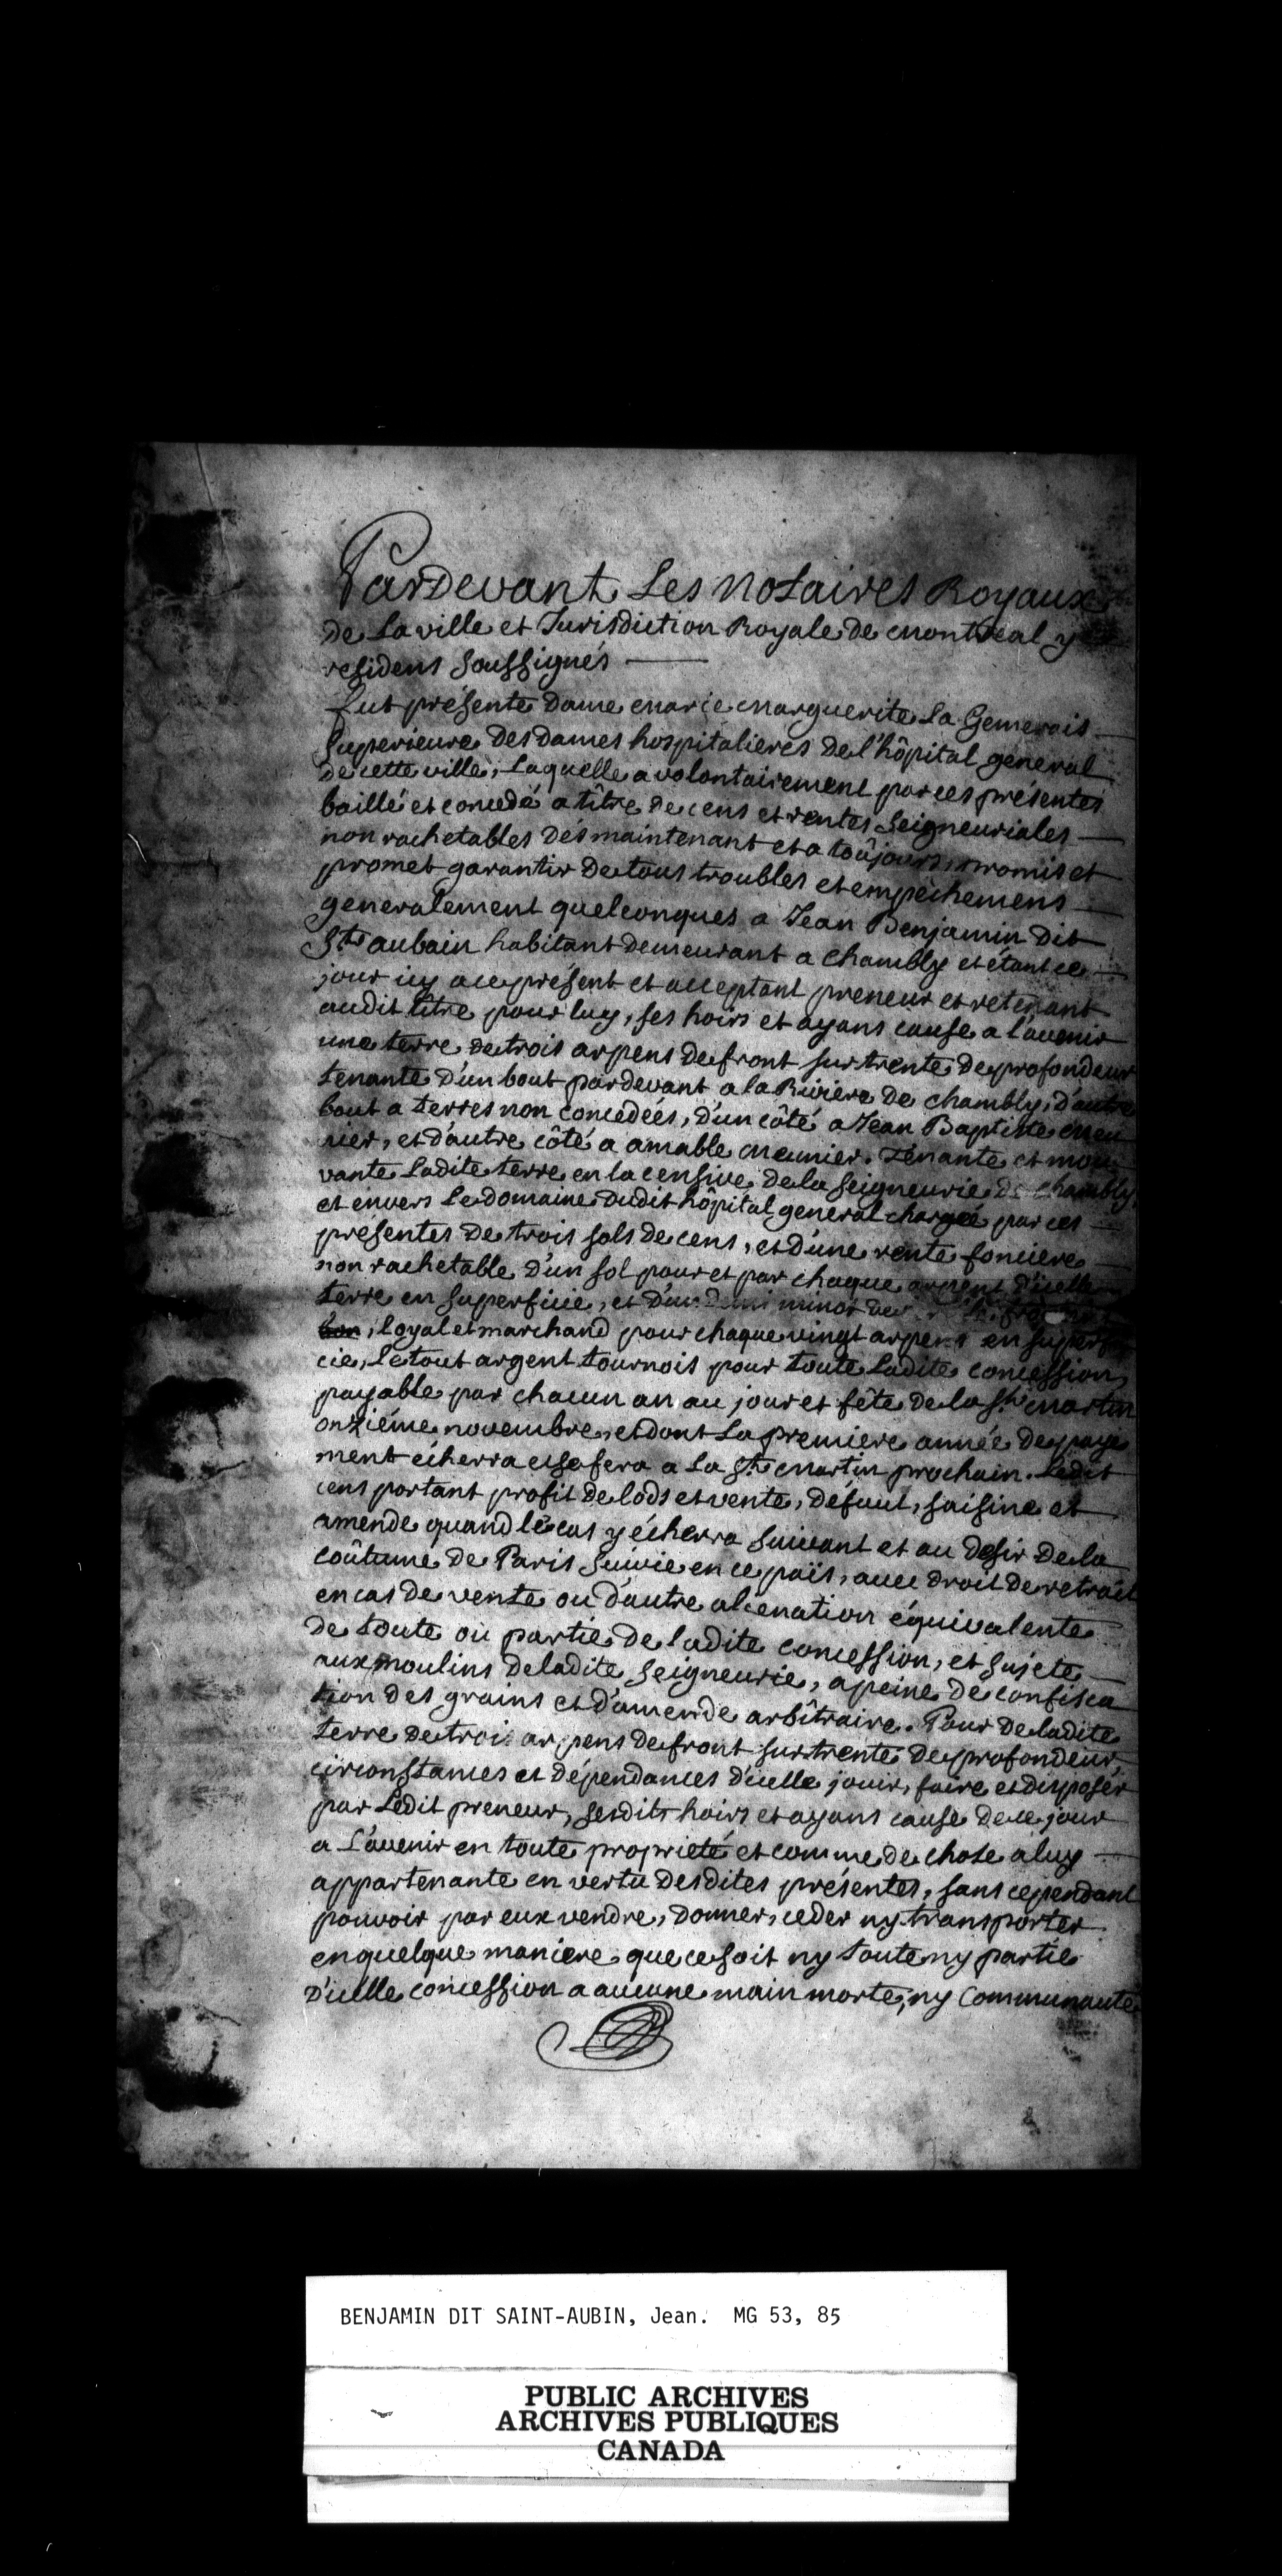 Pardevant Les Notaires Royaux
de La ville et Jurisdiction Royale de Montreal y
residens soussignés
fut présente Dame Marie Marguerite La Gemerais
Superieure des Dames hospitalieres de l'hôpital general
de cette ville, Laquelle a volontairement par ces présentes
baillé et concedé a tître de cens et rentes Seigneuriales
non rachetables dés maintenant et a toûjours, promis et
promet garantir de tous troubles et empêchemens
generalement quelconques a Jean Benjamin Dit
St. aubain habitant demeurant a Chambly et étant ce
jour icy a ce présent et acceptant preneur et retenant
audit tître pour luy, ses hoirs et ayans cause a l'avenir
une terre de trois arpens de front sur trente de profondeur
tenante d'un bout pardevant a la Riviere de Chambly, d'autre
bout a terres non concedées, d'un côté a Jean Baptiste Meu
nier, et d'autre côté a amable Meunier. Tenante et mou
vante Ladite terre en la censive de la Seigneurie de Chambly,
et envers Le domaine dudit hôpital general chargée par ces
presentes de trois sols de cens, et d'une rente fonciere
non rachetable d'un sol pour et par chaque arpent d'icelle
terre en superficie, et d'un demi minot de
bon, loyal et marchand pour chaque vingt arpens en superfi
cie, Le tout argent tournois pour toute Ladite concession,
payable par chacun an au jour et fête de la St. Martin
onziéme novembre, et dont La premiere année de paye
ment écherra et se fera a La St. Martin prochain. Ledit
cens portant profit de lods et vente, défaut, saisine et
amende quand le cas y écherra Suivant et au desir de la
coûtume de Paris Suivie en ce païs, avec droit de retrait
en cas de vente ou d'autre alienation équivalente
de toute ou partie de ladite concession, et sujete
aux moulins de ladite Seigneurie, a peine de confisca
tion des grains et d'amende arbîtraire. Pour de ladite
terre de trois arpens de front sur trente de profondeur,
circonstances et dépendances d'icelle jouir, faire et disposer
par Ledit preneur, sesdits hoirs et ayans cause de ce jour
a L'avenir en toute proprieté et comme de chose a luy
appartenante en vertu desdites présentes, sans cependant
pouvoir par eux vendre, donner, ceder ny transporter
en quelque maniere que ce soit ny toute ny partie
d'icelle concession a aucune main morte, ny Communauté
BENJAMIN DIT SAINT-AUBIN, Jean. MG 53, 85
PUBLIC ARCHIVES
ARCHIVES PUBLIQUES
CANADA